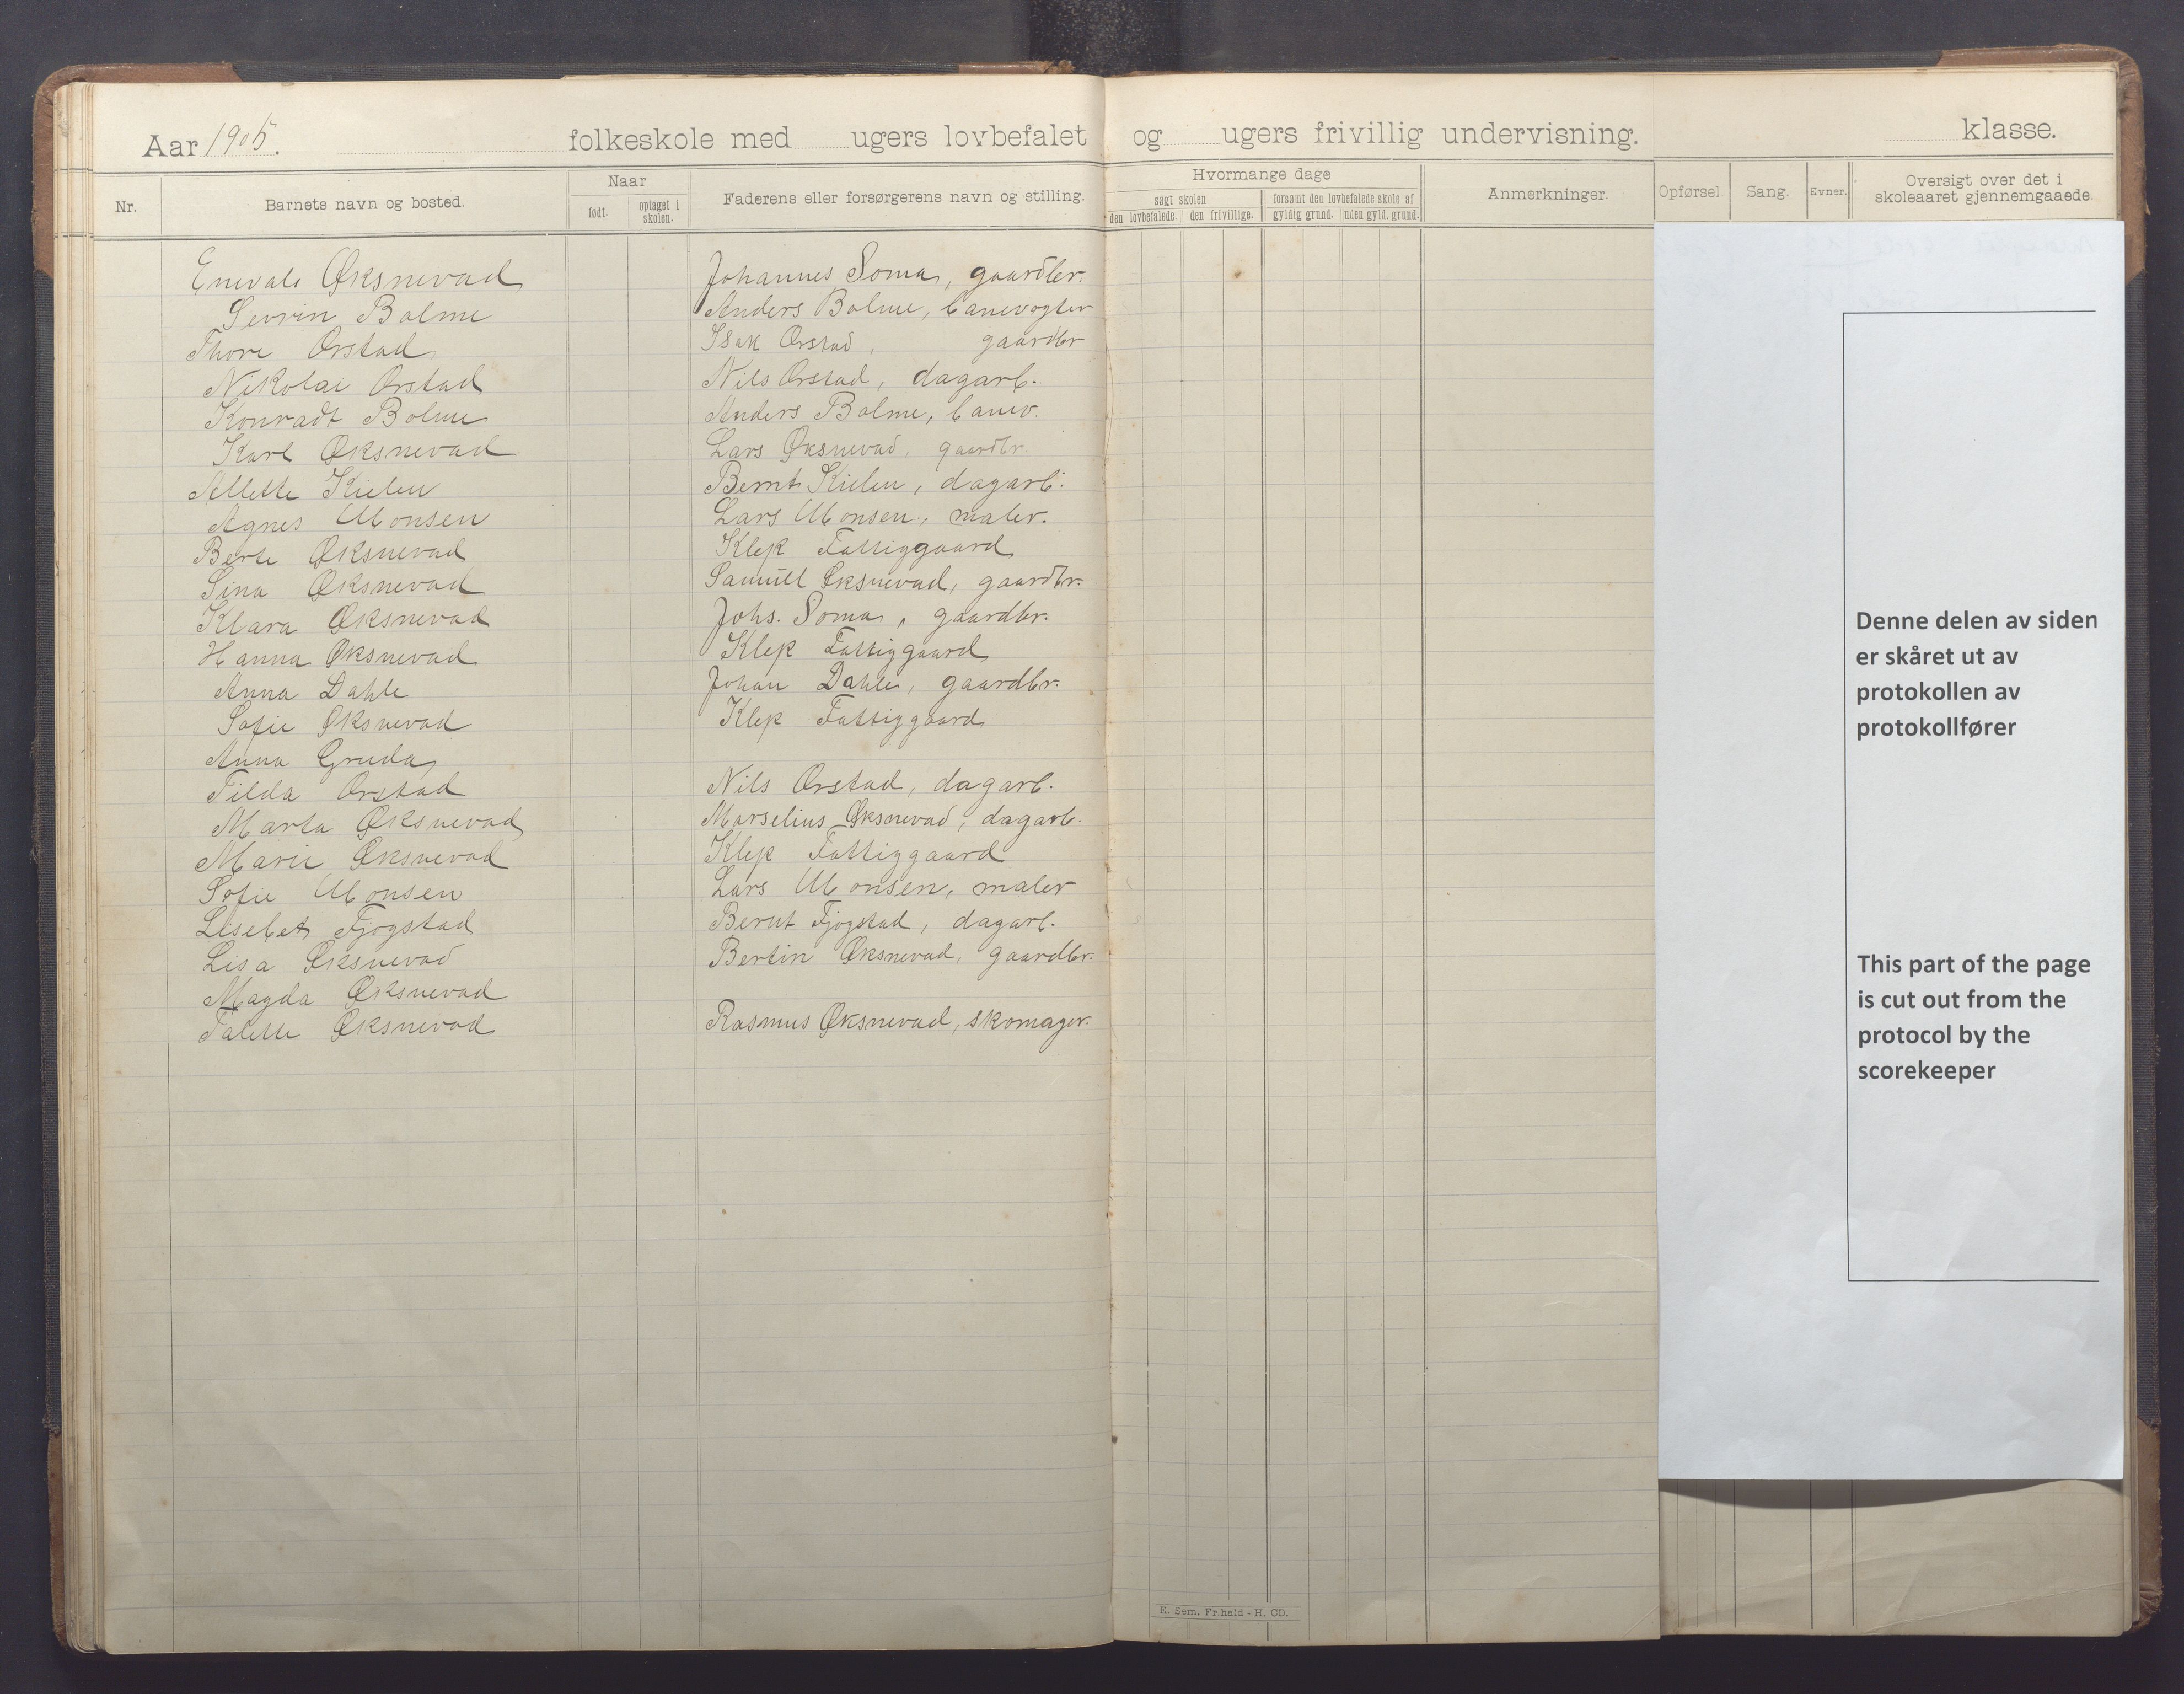 Aar 1905. folkeskole med ugers lovbefalet og ugers frivillig undervisning. klasse.
Nr. Barnets navn og bosted. Naar Faderens eller forsørgerens navn og stilling. Hvormange dage Anmerkninger. Opførsel. Sang. Evner. Oversigt over det i
skoleaaret gjennemgaaede.
født. optaget i
skolen.
søgt skolen forsømt den lovbefalede skole af
den lovbefalede. den frivillige. gyldig grund. uden gyld. grund.
Enevald Øksnevad Johannes Soma, gaardbr.
Sevrin Bolme Anders Bolme, banevogter
Thore Orstad Isak Orstad, gaardbr
Nikolai Orstad Nils Orstad, dagarb.
Konradt Bolme Anders Bolme, banev.
Karl Øksnevad Lars Øksnevad, gaardbr
Allette Kielen Bernt Kielen, dagarb.
Agnes Monsen Lars Monsen, maler.
Berte Øksnevad Klep Fattiggaard
Sina Øksnevad Samuel Øksnevad, gaardbr.
Klara Øksnevad Johs. Soma, gaardbr.
Hanna Øksnevad Klep Fattiggaard
Anna Dahle Johan Dahle, gaardbr.
Sofie Øksnevad Klep Fattiggaard
Anna Gruda
Tilda Orstad Nils Orstad, dagarb.
Marta Øksnevad Marselius Øksnevad, dagarb.
Marie Øksnevad Klep Fattiggaard
Sofie Monsen Lars Monsen, maler
Lisebet Fjogstad Bernt Fjogstad, dagarb.
Lisa Øksnevad Bertin Øksnevad, gaardbr.
Magda Øksnevad
Talette Øksnevad Rasmus Øksnevad, skomager.
Denne delen av siden
er skåret ut av
protokollen av
protokollfører
This part of the page
is cut out from the
protocol by the
scorekeeper
E. Sem. Fr.hald - H. CD.